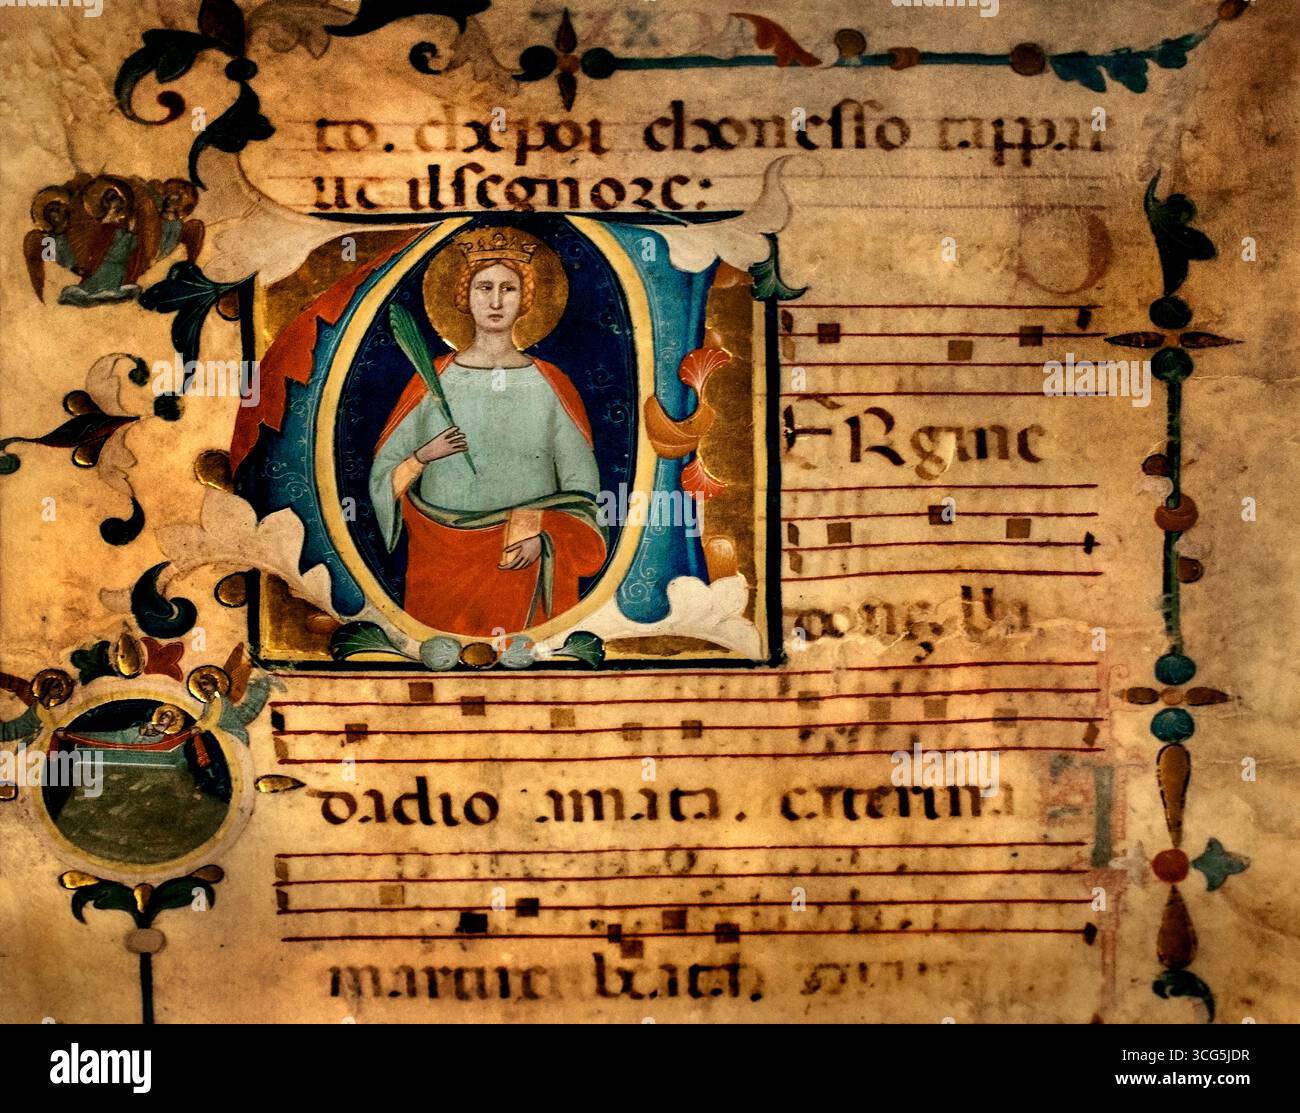 to. chepoi choneſſo tappar
ue ilſegnore:
ERgine
dadio amata. caterina
martire beata
alamy
Image ID: 3CG5JDR
www.alamy.com